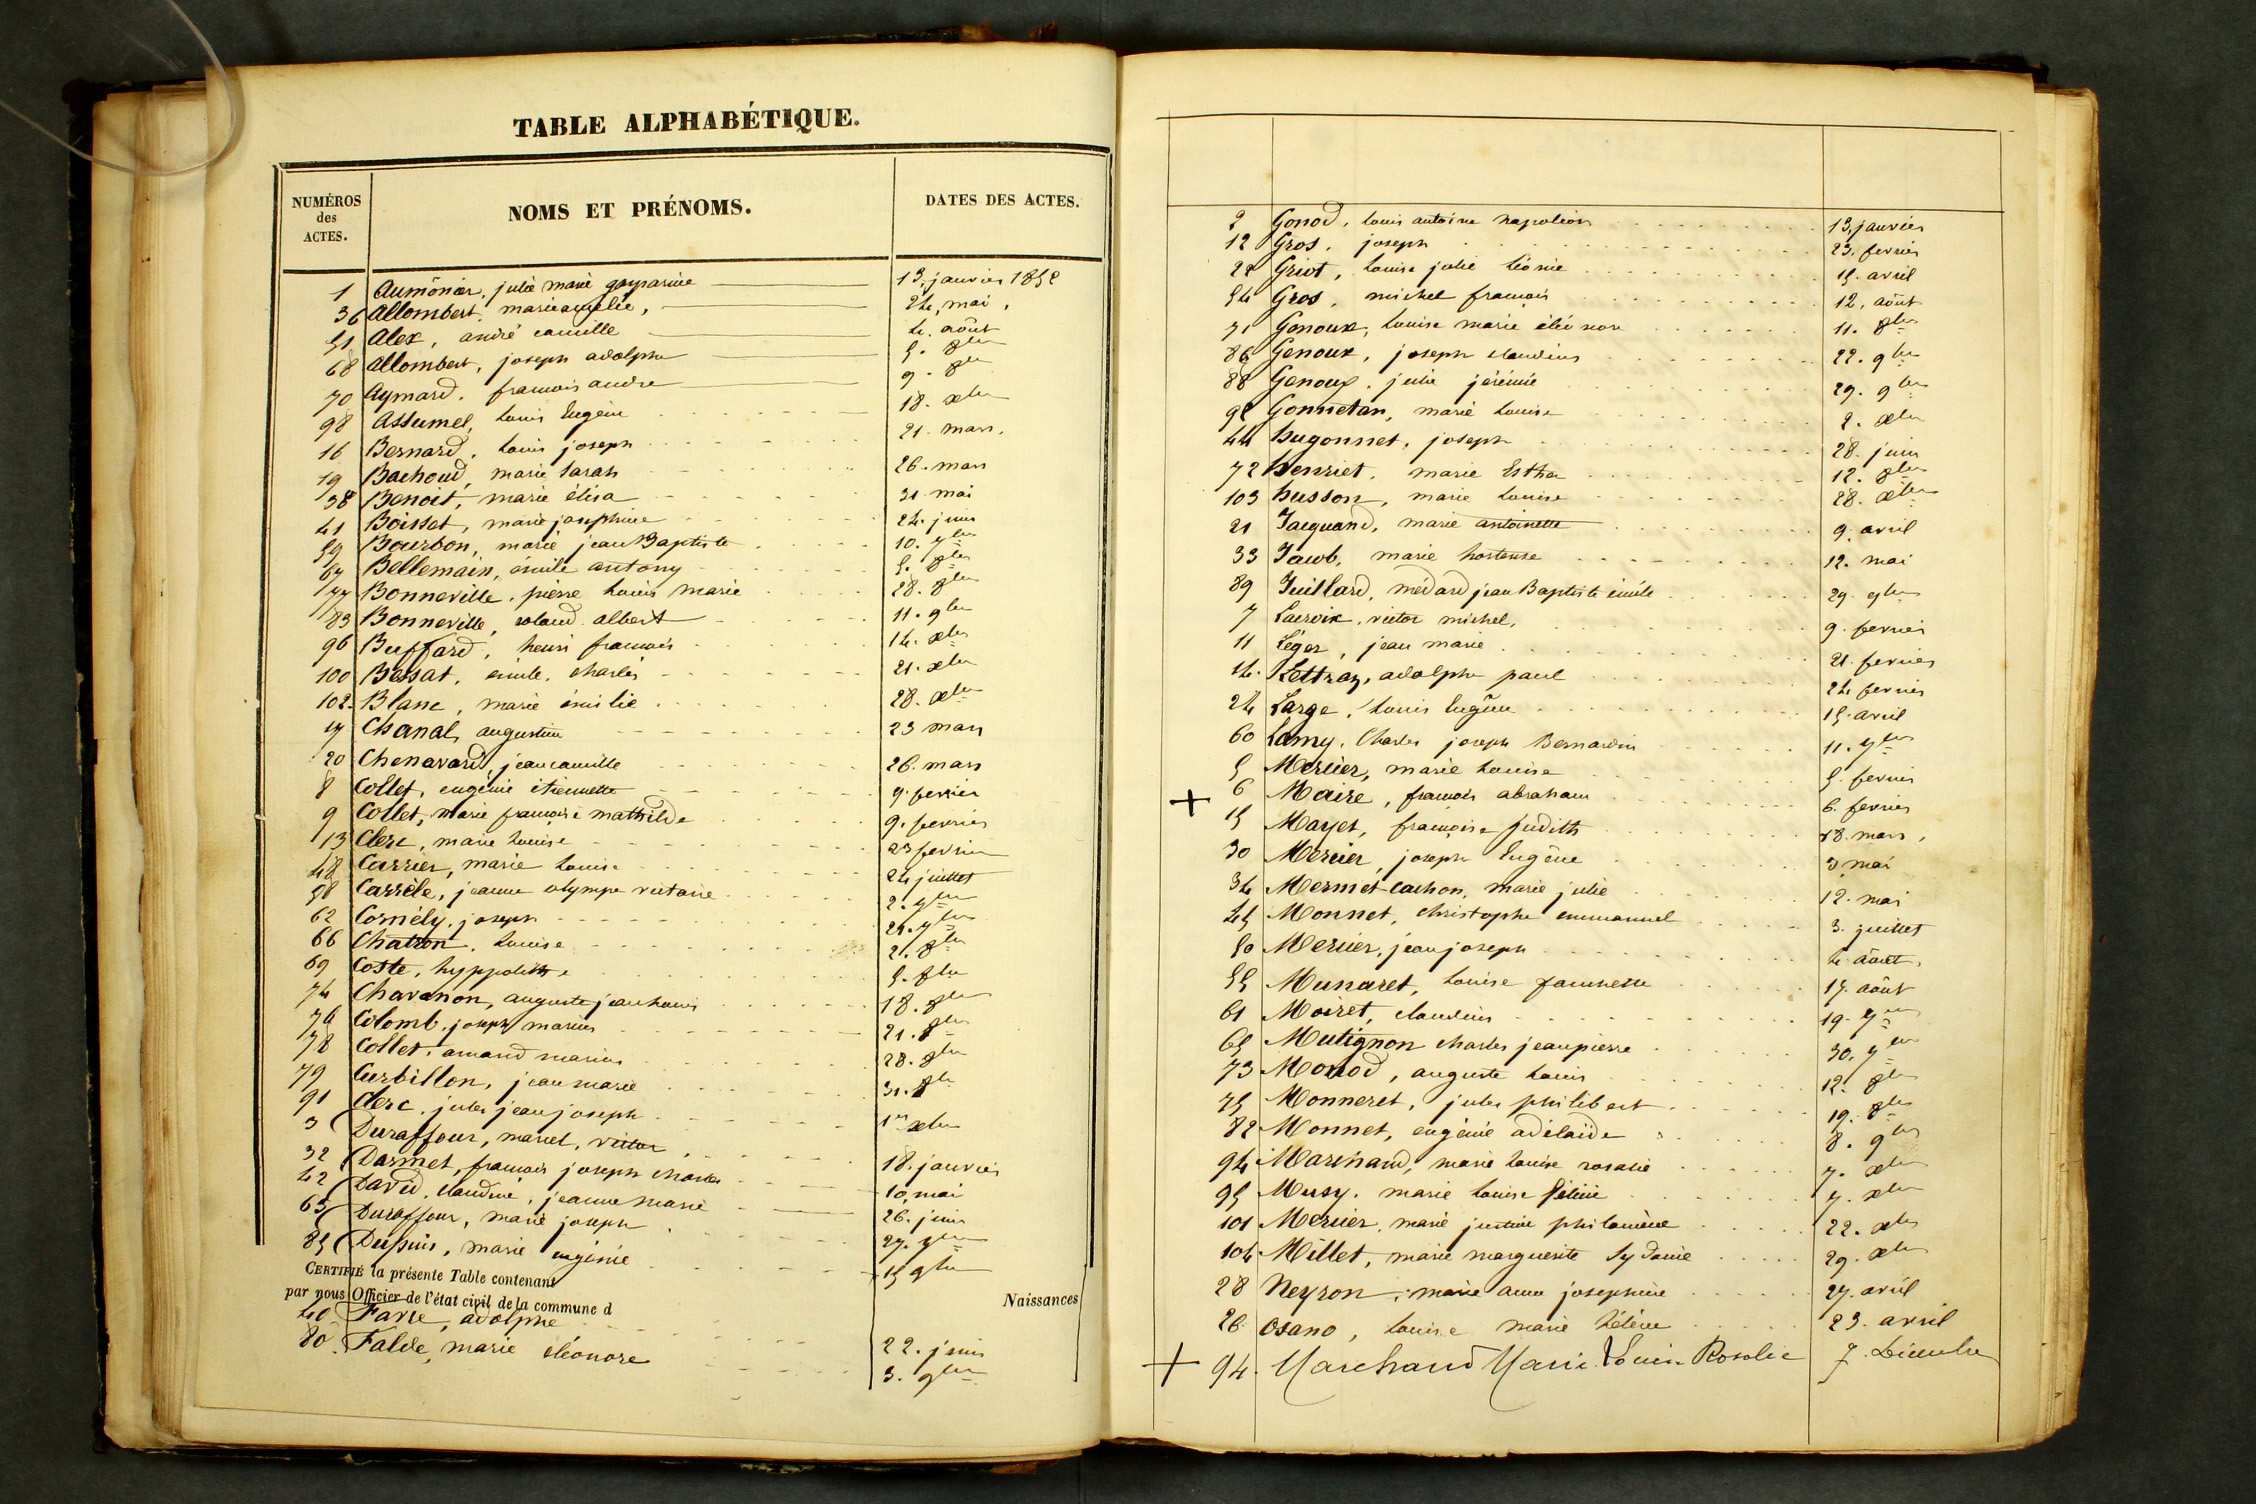 TABLE ALPHABÉTIQUE.
NUMÉROS des ACTES. NOMS ET PRÉNOMS. DATES DES ACTES.
1 Aumônier, julie marie gasparine 13, janvier 1852
36 Allombert, marie amélie, 24, mai,
51 Alex, andré camille 4. août
68 Allombert, joseph adolphe 5. 8bre
70 Aymard, francois andre 9. 8bre
98 Assumel, louis Eugène 18. xbre
16 Bernard, louis joseph 21. mars,
19 Bachoud, marie sarah 26. mars
38 Benoit, marie élisa 31 mai
41 Boissat, marie josephine 24. juin
59 Bourbon, marie jean Baptiste 10. 7bre
67 Bellemain, émile antony 5. 8bre
77 Bonneville, pierre louis marie 28. 8bre
83 Bonneville, roland albert 11. 9bre
96 Buffard, henri francois 14. xbre
100 Bessat, émile, charles 21. xbre
102. Blanc, marie émilie 28. xbre
17 Chanal, augustine 23 mars
20 Chenavard, jean camille 26. mars
8 Collet, eugénie étiennette 9. fevrier
9 Collet, marie françoise mathilde 9. fevrier
13 Clerc, marie louise 23 fevrier
48 Carrier, marie louise 24 juillet
58 Carrèle, jeanne olympe victorie 2. 7bre
62 Cornély, joseph 21. 7bre
66 Chatron, louise 2. 8bre
69 Coste, hyppolitte 5. 8bre
74 Chavanon, auguste jean louis 18. 8bre
76 Colomb, joseph marius 21. 8bre
78 Collet, amand marius 28. 8bre
79 Curbillon, jean marie 31. 8bre
91 Clerc, jules jean joseph 1er xbre
3 Duraffour, marcel, victor 18. janvier
32 Darmet, francois joseph charles 10, mai
42 David, claudine, jeanne marie 26. juin
63 Duraffour, marie joseph 27. 7bre
85 Dupuis, marie eugénie 15 9bre
CERTIFIÉ la présente Table contenant Naissances
par nous Officier de l'état civil de la commune d
40 Favre, adolphe 22. juin
80. Falde, marie éléonore 3. 9bre
2 Gonod, louis antoine napoléon 13, janvier
12 Gros, joseph 23. fevrier
22 Griot, louise julie léonie 15. avril
54 Gros, michel francois 12, août
71 Genoux, louise marie éléonore 11. 8bre
86 Genoux, joseph claudius 22. 9bre
88 Genoux, julie jérémie 29. 9bre
92 Gonnetan, marie louise 2. xbre
44 hugonnet, joseph 28. juin
72 henriet, marie Esther 12. 8bre
103 husson, marie louise 28. xbre
21 Jacquand, marie antoinette 9. avril
33 Jacob, marie hortense 12. mai
89 Juillard, médard jean Baptiste émile 29. 9bre
7 Lacroix, victor michel, 9. fevrier
11 Léger, jean marie 21. fevrier
14. Lettraz, adolphe paul 24 fevrier
24 Large, louis Eugène 15. avril
60 Lamy, Charles joseph Bernardin 11. 7bre
5 Mercier, marie louise 5. fevrier
+ 6 Maire, francois abraham 6. fevrier
15 Mayet, françoise Judith 18. mars,
30 Mercier, joseph Eugène 3, mai
34 Mermet-cachon, marie julie 12. mai
45 Monnet, christophe emmanuel 3. juillet
50 Mercier, jean joseph 4. août,
55 Munaret, louise fannette 17. août
61 Moiret, claudius 19. 7bre
65 Mutignon charles jean pierre 30. 7bre
73 Monod, auguste louis 12. 8bre
75 Monneret, jules philibert 19. 8bre
82 Monnet, eugénie adélaïde 8. 9bre
94 Marchand, marie louise rosalie 7. xbre
95 Musy, marie louise félicie 7. xbre
101 Mercier, marie justine philomène 22. xbre
104. Millet, marie marguerite Sydonie 29. xbre
28 Neyron, marie anne josephine 27. avril
26 Osano, louise marie hélène 23. avril
+ 94. Marchand Marie Louise Rosalie 7. Décembre